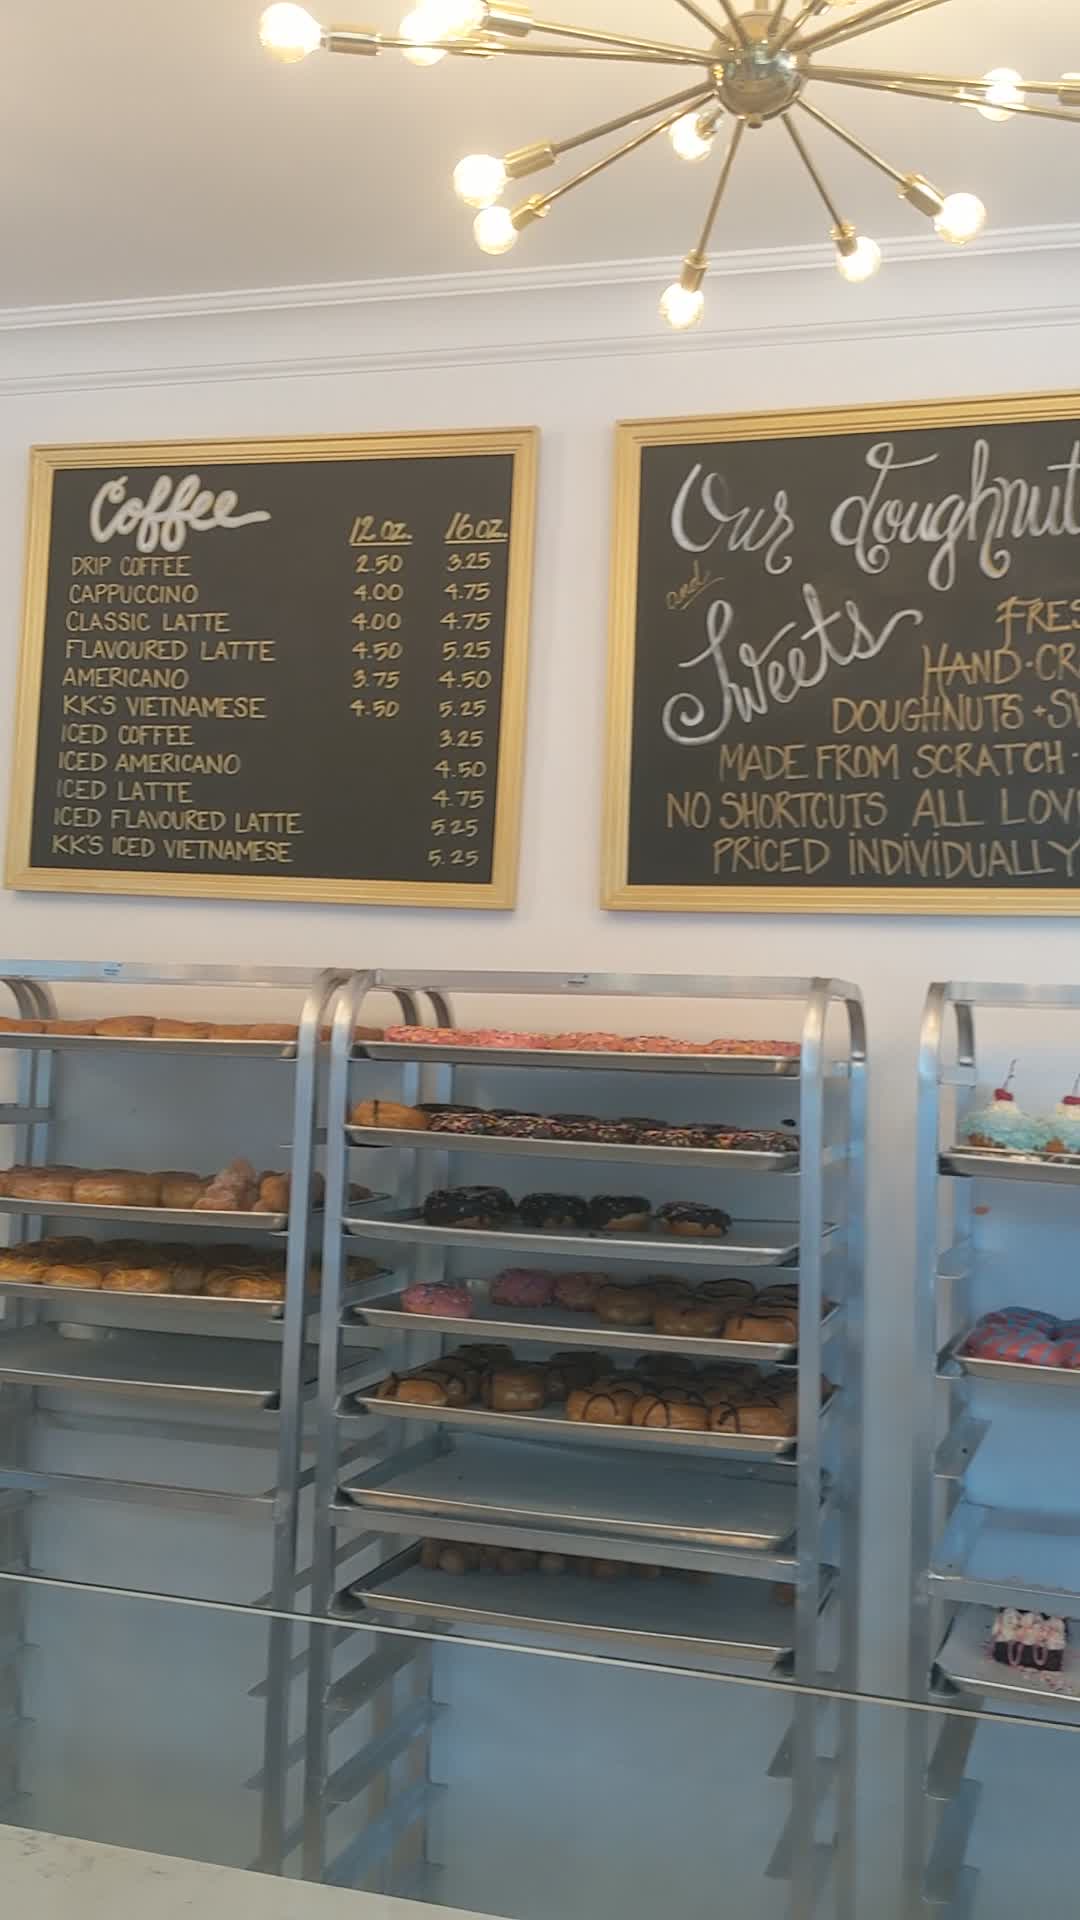 Coffee
12 oz. 16 oz.
DRIP COFFEE 2.50 3.25
CAPPUCCINO 4.00 4.75
CLASSIC LATTE 4.00 4.75
FLAVOURED LATTE 4.50 5.25
AMERICANO 3.75 4.50
KK'S VIETNAMESE 4.50 5.25
ICED COFFEE 3.25
ICED AMERICANO 4.50
ICED LATTE 4.75
ICED FLAVOURED LATTE 5.25
KK'S ICED VIETNAMESE 5.25
Our doughnut
and
Sweets
FRES
HAND-CR
DOUGHNUTS + SW
MADE FROM SCRATCH -
NO SHORTCUTS ALL LOV
PRICED INDIVIDUALLY